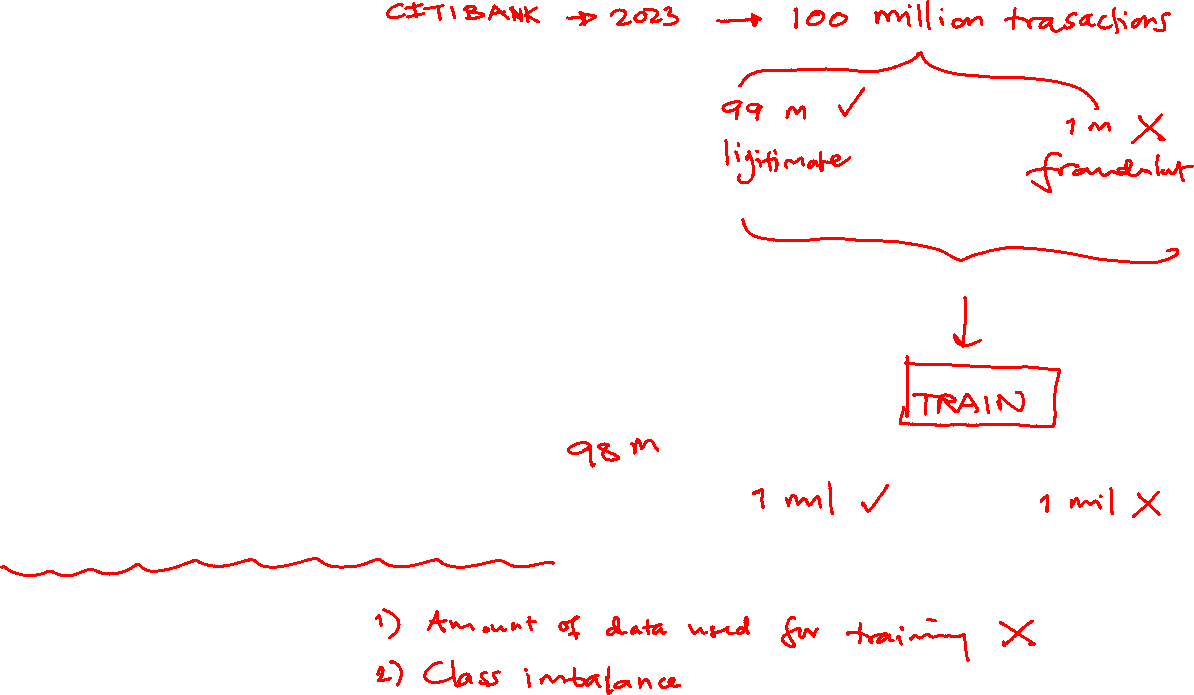 CITIBANK → 2023 → 100 million trasactions
99 m ✓
1 m X
ligitimate
fraudulut
TRAIN
98 m
1 mil ✓
1 mil X
1) Amount of data used for training X
2) Class imbalance